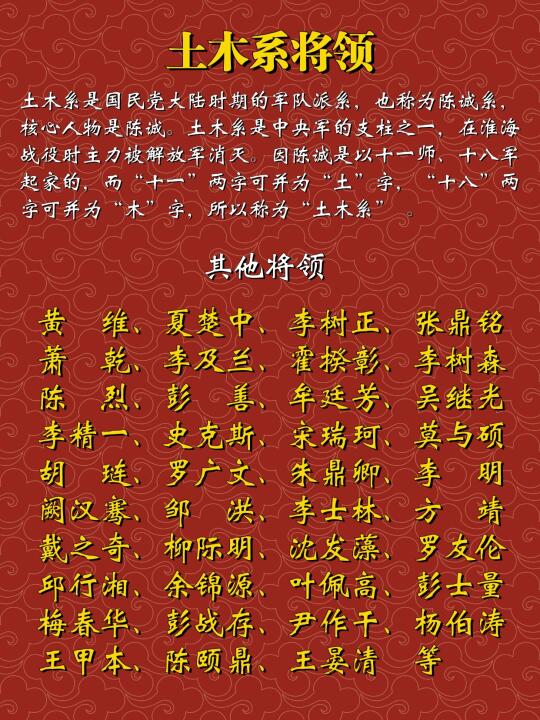 土木系将领
土木系是国民党大陆时期的军队派系，也称为陈诚系，
核心人物是陈诚。土木系是中央军的支柱之一，在淮海
战役时主力被解放军消灭。因陈诚是以十一师、十八军
起家的，而“十一”两字可并为“土”字，“十八”两
字可并为“木”字，所以称为“土木系” 。
其他将领
黄　维、夏楚中、李树正、张鼎铭
萧　乾、李及兰、霍揆彰、李树森
陈　烈、彭　善、牟廷芳、吴继光
李精一、史克斯、宋瑞珂、莫与硕
胡　琏、罗广文、朱鼎卿、李　明
阙汉骞、邹　洪、李士林、方　靖
戴之奇、柳际明、沈发藻、罗友伦
邱行湘、余锦源、叶佩高、彭士量
梅春华、彭战存、尹作干、杨伯涛
王甲本、陈颐鼎、王晏清　等